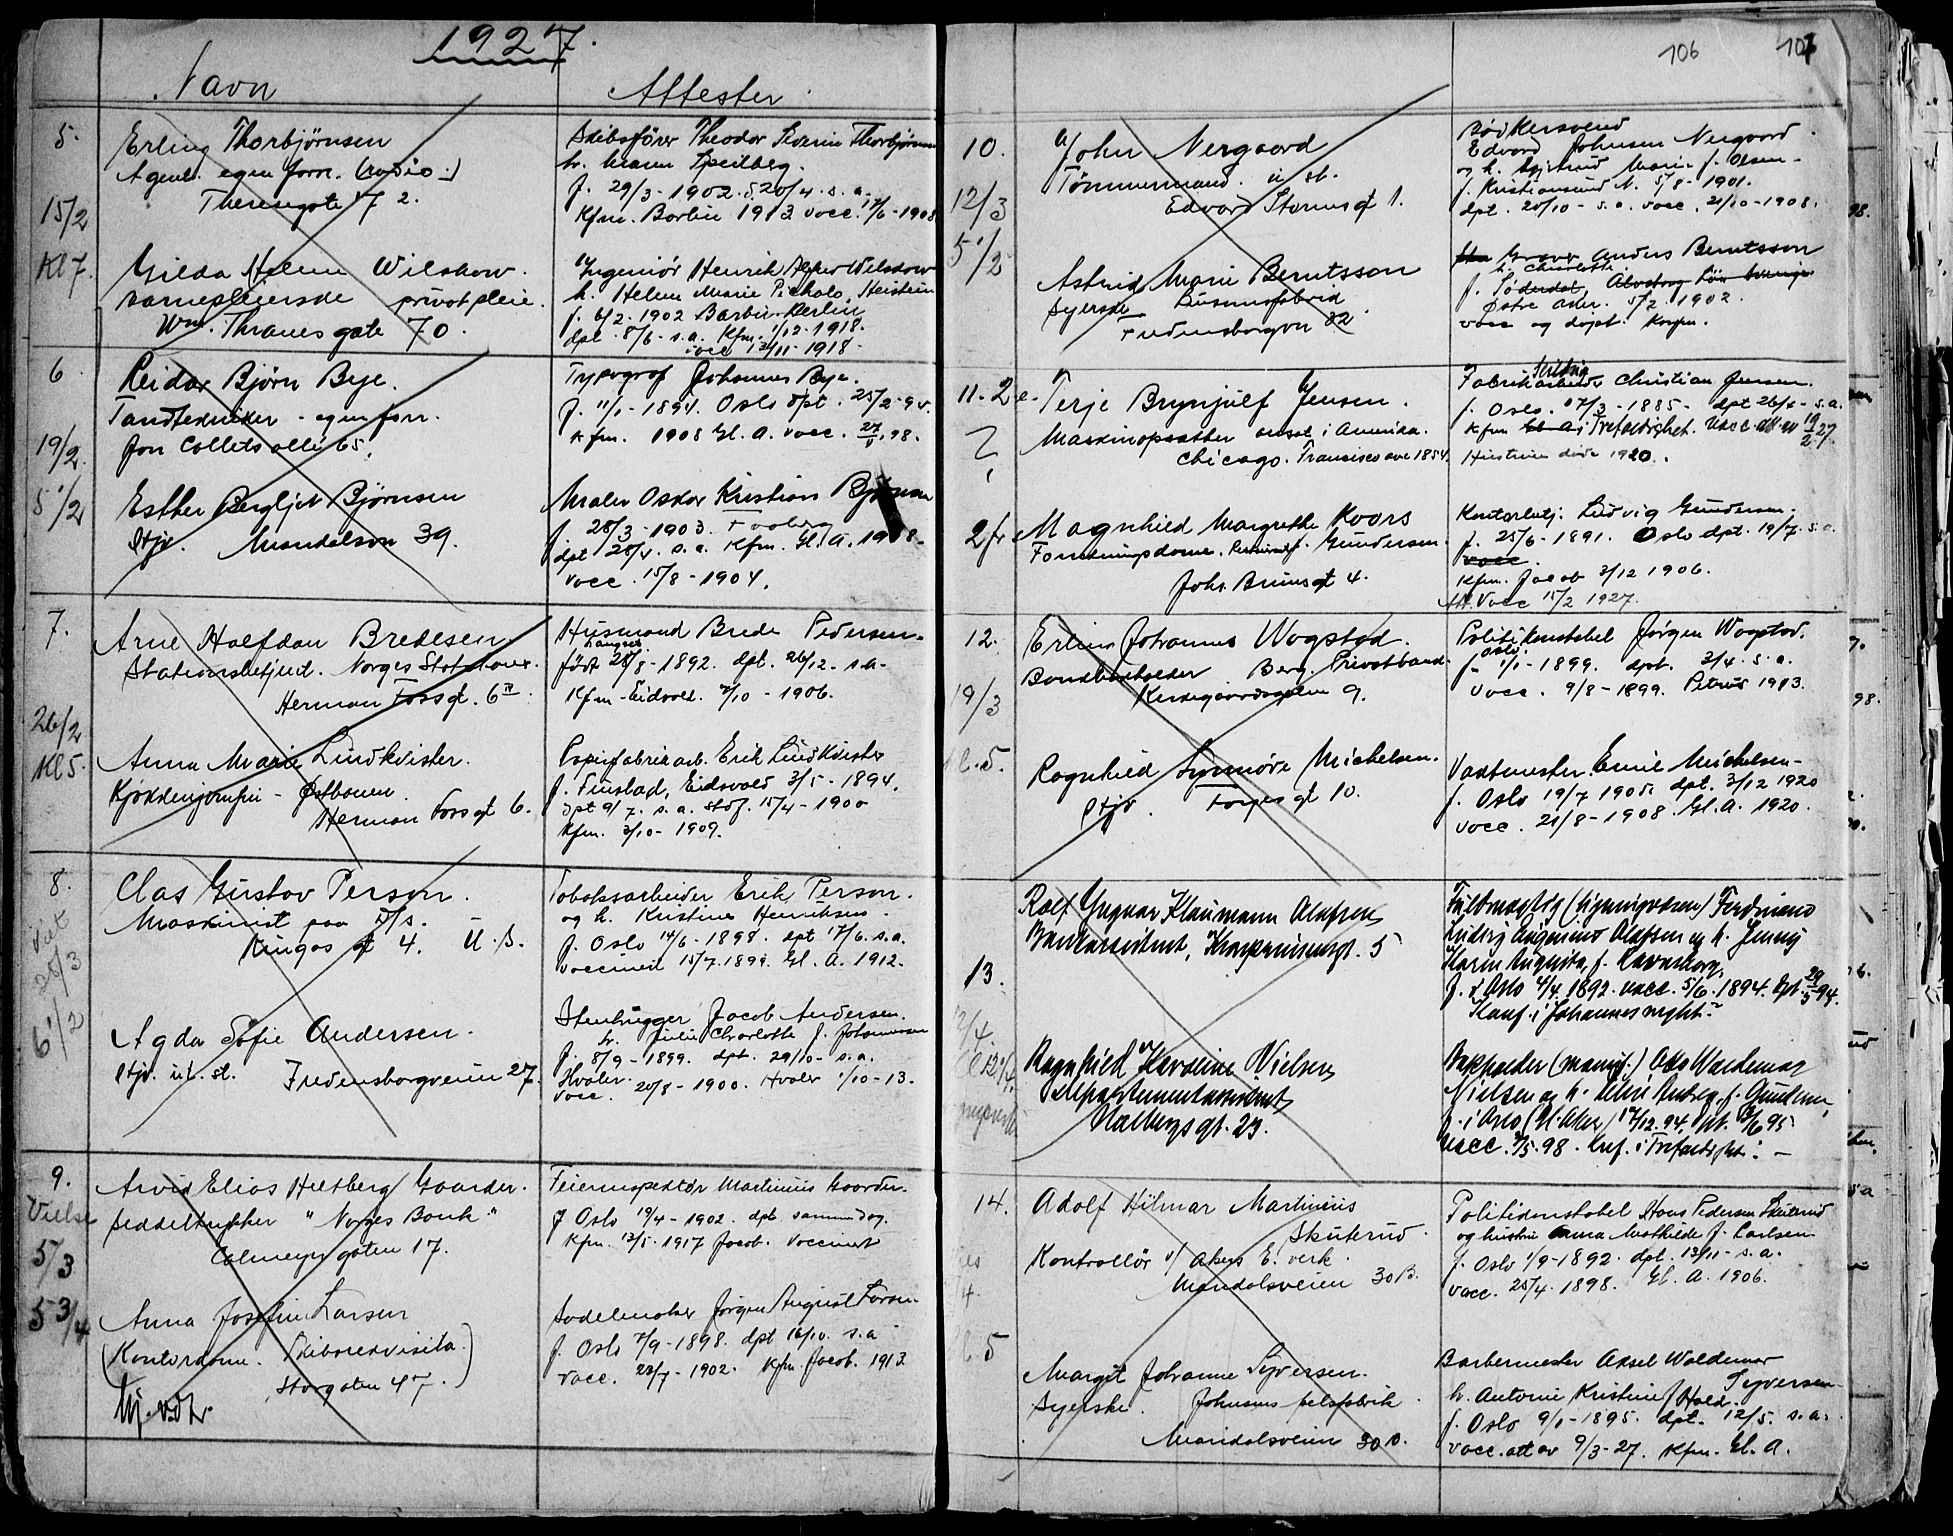 1927.
Navn
Attester
5.
Erling Thorbjørnsen
Agent. egen forr. (radio.)
Theresegate 47 2.
15/2
Kl 7.
Skibsfører Theodor Severin Thorbjørnsen
f. 29/3-1902. d. 20/4. s. a.
Kfm. Barbu 1913 vacc. 17/6-1908
Gilda Helene Wilskow.
barnepleierske privatpleie.
Wm. Thranes gate 70.
Ingeniør Henrik Alfred Wilskow
h. Helene Marie
f. 6/2. 1902 Berlin
dpt. 8/6- s.a. Kfm. 1/12-1918.
vacc 13/11-1918-
6
19/2.
5 1/2
Reidar Bjørn Bye.
Tandtekniker - egen forr.
Jon Collets allé 65.
Typograf Johannes Bye.
f. 11/1-1894. Oslo dpt. 25/2-94.
Kfm. 1908 Gl. A. vacc. 27/5. 98.
Esther Bergljot Bjørnsen
Stjr. Maridalsvn 39.
Maler Oskar Kristian Bjørnsen
f. 28/3-1903. Faaberg
dpt 28/4. s. a. Kfm. Gl. A. 1918-
vacc. 15/8-1904.
7.
26/2
Kl 5.
Arne Halfdan Bredesen.
Stationsbetjent. Norges Statsbaner.
Herman Fossgt. 6 IV
Husmand Brede Pedersen.
født 28/8-1892. dpt. 26/12- s.a-
Kfm-Eidsvold. 7/10-1906.
Anna Marie Lindkvister.
Kjøkkenjomfru - Østbanen
Herman Foss gt 6.
Papirfabrikarb. Erik Lindkvister
f. Finstad, Eidsvold 3/5-1894.
dpt 9/7. s. a. 15/4-1900
Kfm. 3/10-1909.
8.
26/3
6 1/2
Clas Gustav Person.
Maskinist paa D/s.
Kingos gt 4. U. S.
Tobaksarbeider Erik Person.
og h. Kristine Henriksen.
f. Oslo 14/6-1898. dpt 17/6. s.a.
vaccineret 15/7 1899. Gl. A. 1912.
Agda Sofie Andersen.
Stjr. ut. st. Fredensborgveien 27.
Stenhugger Jacob Andersen.
h. Julie Charlotte f. Johannesen
f. 8/9-1899. dpt. 29/10- s.a.
Hvaler. 20/8-1900. Hvaler 1/10-13.
vacc.
9.
Vielse
5/3
5 3/4
Arvid Elias Heltberg Gaarder.
Seddeltrykker "Norges Bank"
Calmeyergaten 17.
Feierinspektør Martinius Gaarder.
f Oslo 19/4-1902. dpt samme dag.
Kfm. 13/5. 1917 Jacob. vaccinert
Anna Josefine Larsen
(Kontordame.
Storgaten 47.)
Sadelmaker Jørgen August Larsen
f. Oslo 7/9-1898. dpt 16/10. s.a
vacc. 23/7-1902. Kfm. Jacob. 1913.
106
10.
12/3
5 1/2
John Nergaard
Tømmermand. u. st.
Edvard Stormsgt 1.
Bødkersvend
Edvard Johnsen Nergaard.
og h. Marie f. Olsen-
f. Kristiansund N. 5/8-1901.
dpt. 20/10- s. a. vacc. 21/10-1908.
Astrid Marie Berntsson
Syerske Blusefabrik
Fredensborgvn 82
Anders Berntsson
h. Charlotte
Østre Aker. 5/2. 1902.
vacc og døpt. Konfm.
11. 2e.
Terje Brynjulf Jensen.
Maskinopsætter ansat i Amerika.
Chicago. Francisco ave 1854.
Fabrikarbeider Christian Jensen.
f. Oslo. 07/3-1885- dpt 26/4- s.a.
Kfm i Trefoldighet. Vacc. att av 19/2 27.
Hustruen døde 1920.
Magnhild Margrethe Koors
Forretningsdame. Gundersen.
Johs. Brunsgt 4.
Kontorbetj. Ludvig Gundersen.
f. 25/6-1891. Oslo dpt. 19/7. s.a.
vacc.
Kfm. Jacob 3/12 1906.
Att. Vacc 15/2 1927.
12.
19/3
Kl. 5.
Erling Johannes Wogstad.
Privatbank.
Kirkegaardsgaten 9.
Politikonstabel Jørgen Wogstad.
Oslo
f. 1/1-1899. dpt. 3/4. s. a.
vacc. 9/8-1899. Petrus 1913.
Ragnhild Synnøve Michelsen.
Stjr. Torgesgt 10.
Vaktmester Emil Michelsen-
dpt. 3/12 1920
vacc. 21/8-1908. Gl. A. 1920.
13.
Rolf Yngvar Klaumann Olafsen
Bankassistent, 5
Fuldmægtig (ligningsvæsen) Ferdinand
Ludvig Olafsen og h. Jenny
Karin Augusta, f.
f. i Oslo 4/4 1892. vacc. 5/6. 1894. dpt. 29/5 94.
Konf. i Johannes
Ragnhild Karoline Nielsen
Departementsassistent
Holbergs gt. 23.
Bokholder Waldemar
Nielsen og h.
f. i Oslo
vacc. 98. Konf. i Trefoldighet. -
14.
Kl. 5
Adolf Hilmar Martinius
Skuterud.
Kontrollør v/ Akers E. verk.
Maridalsveien 30 B.
Politikonstabel Hans Pedersen Skuterud
og hustru Anna Mathilde f. Carlsen
f. Oslo 1/9-1892. dpt. 13/11- s. a.
vacc. 25/4. 1898. Gl. A. 1906.
Margit Johanne Syversen.
Syerske. Johnsens pelsfabrik.
Maridalsveien 30 B.
Barbermester Aksel Waldemar
Syversen
h. Antonie Kristine f Hold.
f. Oslo 9/1-1895. dpt. 12/5. s.a.
vacc. att av 9/3-27. Kfm. Gl. A.